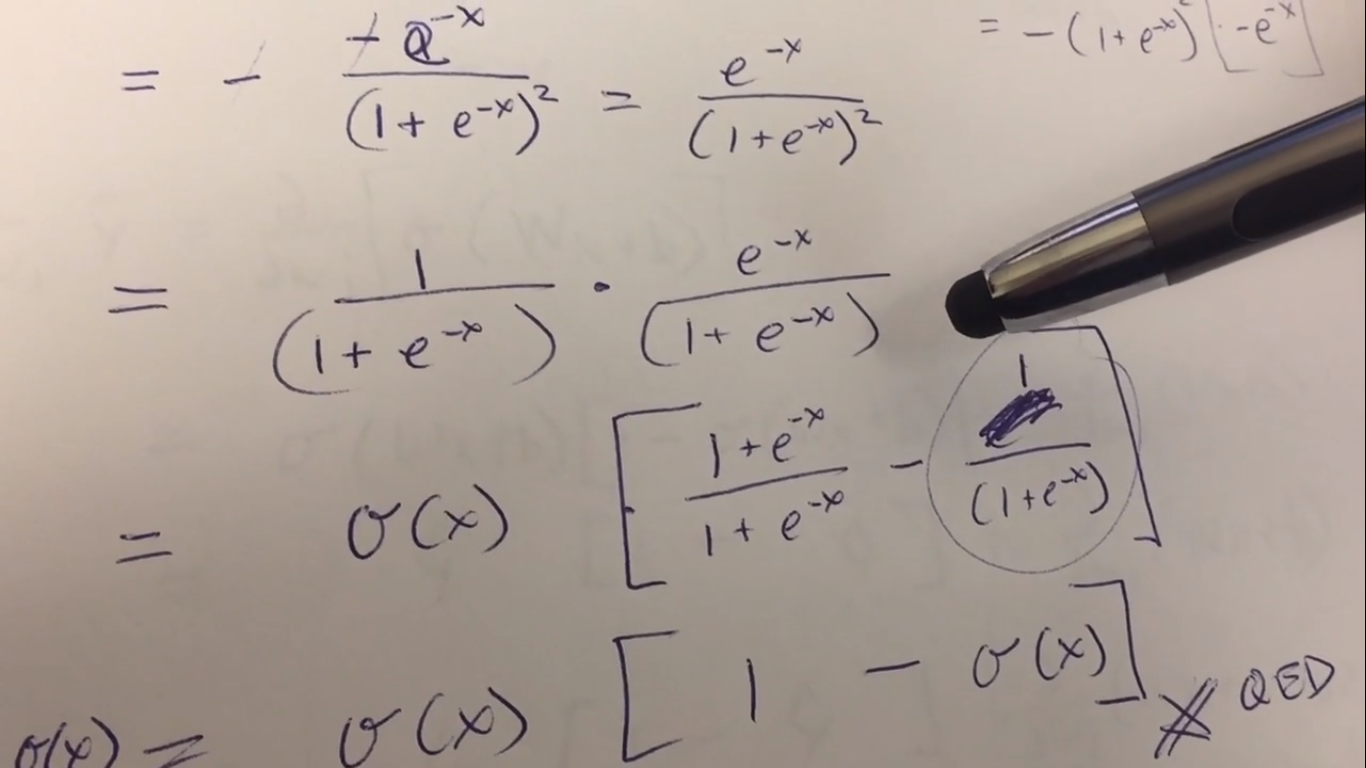 = - (1+e^-x)^2 [-e^-x]
= - -e^-x/(1 + e^-x)^2 = e^-x/(1+e^-x)^2
= 1/(1 + e^-x) · e^-x/(1 + e^-x)
= σ(x) [1+e^-x/1 + e^-x - 1/(1+e^-x)]
σ(x) = σ(x) [1 - σ(x)] QED